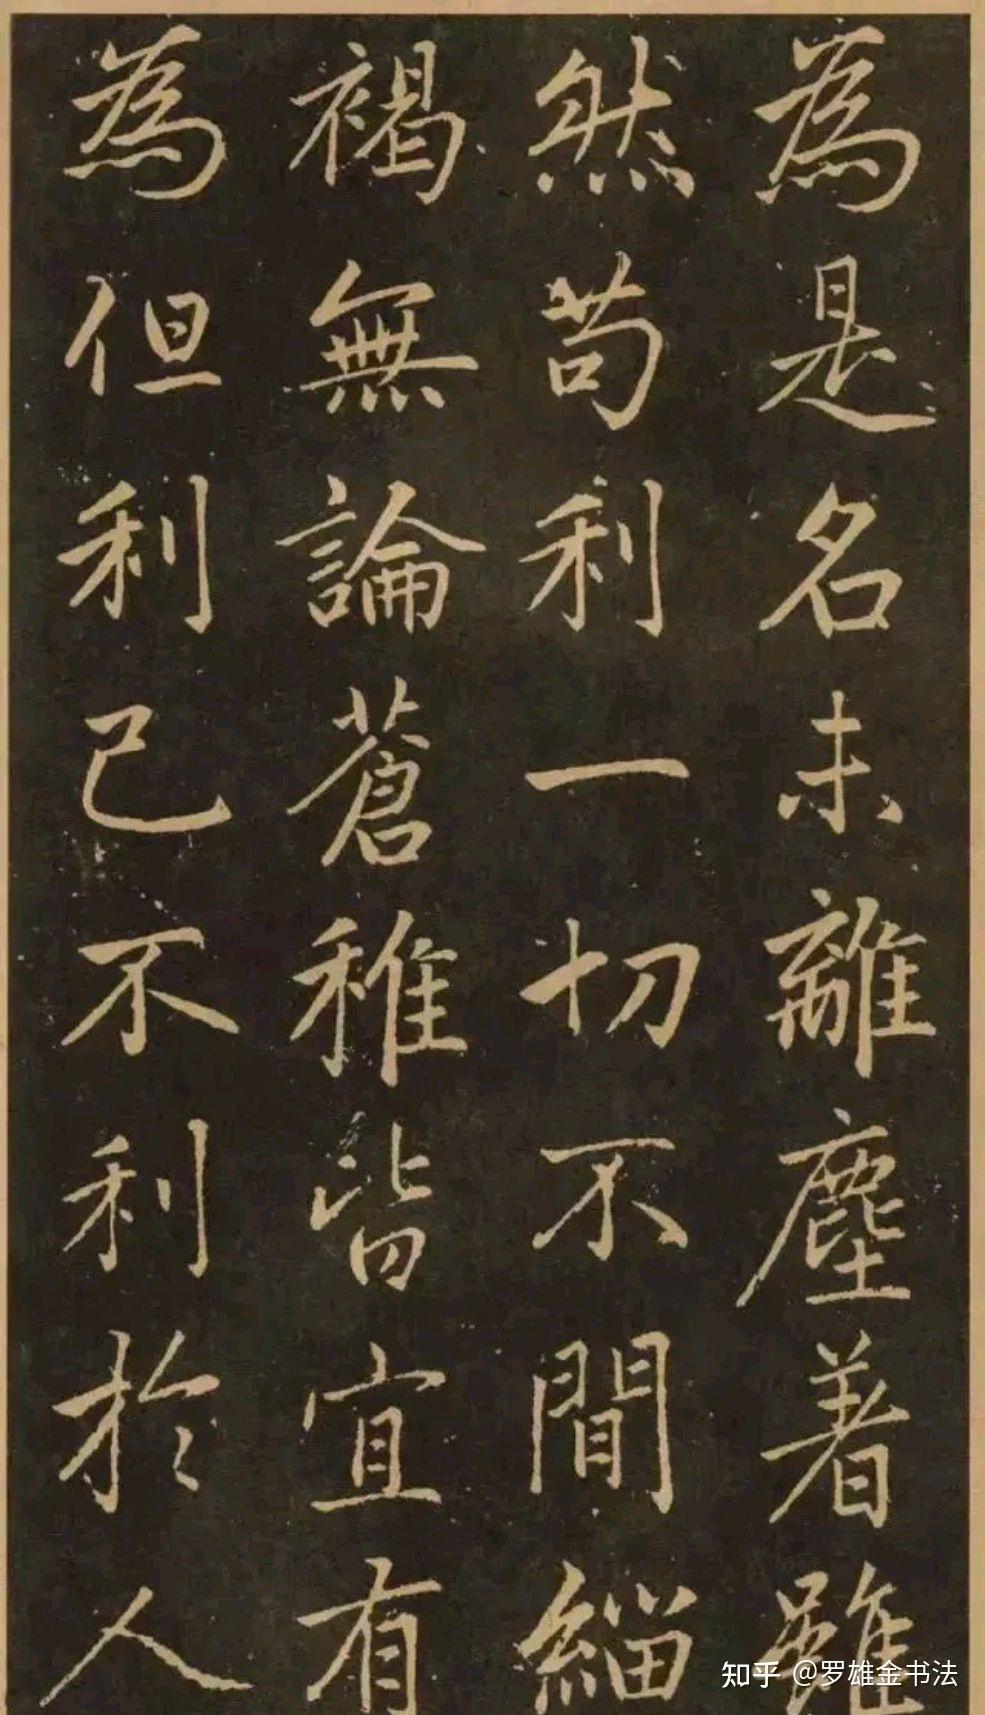 為是名未離塵著雖
然苟利一切不間緇
褐無論蒼稚皆宜有
為但利己不利於人
知乎 @罗雄金书法